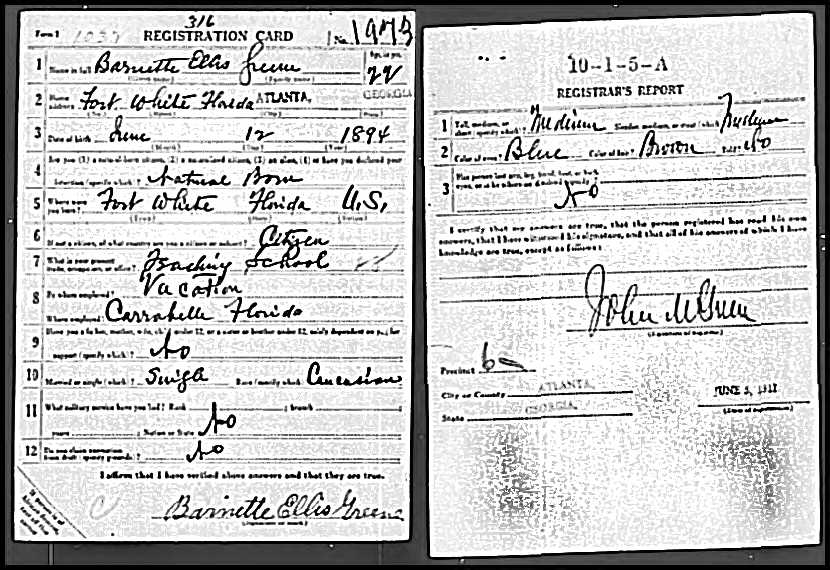 316
Form 1 1037 REGISTRATION CARD No. 1973
1 Name in full Barnette Ellis Greene Age, in yrs. 22
(Given name) (Family name)
2 Home address Fort White Florida ATLANTA, GEORGIA
(No.) (Street) (City) (State)
3 Date of birth June 12 1894
(Month) (Day) (Year)
4 Are you (1) a natural-born citizen, (2) a naturalized citizen, (3) an alien, (4) or have you declared your
intention (specify which)? Natural Born
5 Where were you born? Fort White Florida U.S.
(Town) (State) (Nation)
6 If not a citizen, of what country are you a citizen or subject? Citizen
7 What is your present trade, occupation, or office? Teaching School
8 By whom employed? Vacation
Where employed? Carrabelle Florida
9 Have you a father, mother, wife, child under 12, or a sister or brother under 12, solely dependent on you for
support (specify which)? No
10 Married or single (which)? Single Race (specify which)? Caucasian
11 What military service have you had? Rank ; branch ;
years ; Nation or State No
12 Do you claim exemption from draft (specify grounds)? No
I affirm that I have verified above answers and that they are true.
Barnette Ellis Greene
(Signature or mark)
If person is of
10-1-5-A
REGISTRAR'S REPORT
1 Tall, medium, or short (specify which)? Medium Slender, medium, or stout (which)? Medium
2 Color of eyes? Blue Color of hair? Brown Bald? No
3 Has person lost arm, leg, hand, foot, or both
eyes, or is he otherwise disabled (specify)? No
I certify that my answers are true, that the person registered has read his own
answers, that I have witnessed his signature, and that all of his answers of which I have
knowledge are true, except as follows:
John M
(Signature of registrar)
Precinct 6
City or County ATLANTA,
State GEORGIA, JUNE 5, 1917
(Date of registration)